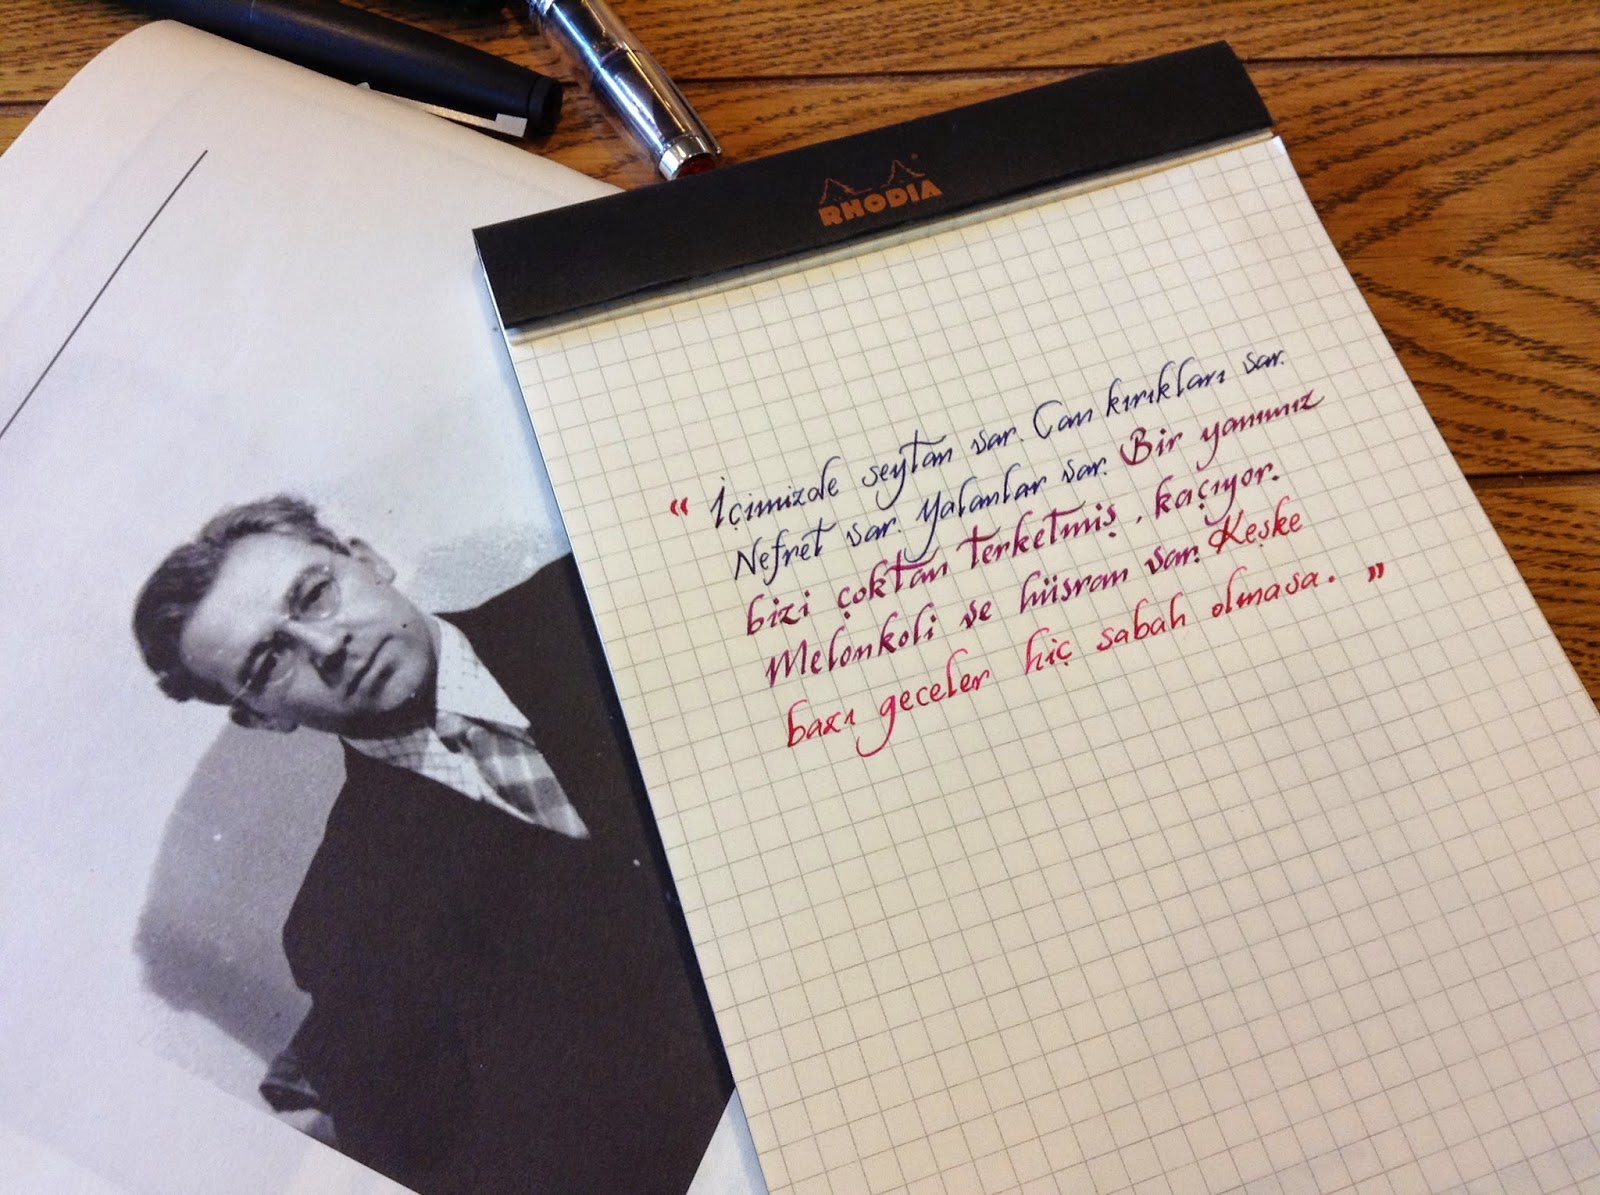 RHODIA
“ İçimizde şeytan var. Can kırıkları var.
Nefret var. Yalanlar var. Bir yanımız
bizi çoktan terketmiş, kaçıyor.
Melonkoli ve hüsran var. Keşke
bazı geceler hiç sabah olmasa. ”